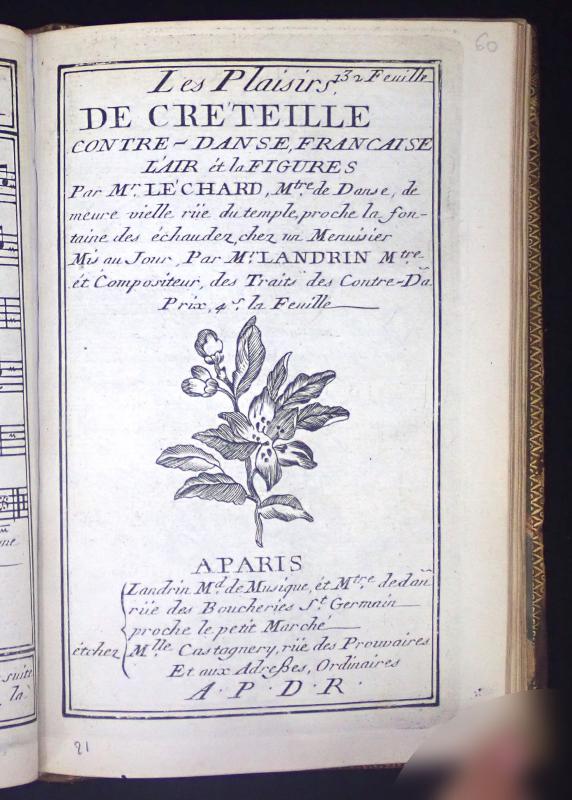 60
Les Plaisirs, 132 Feuille
DE CRÉTEILLE
CONTRE-DANSE, FRANCAISE
L'AIR ét la FIGURES
Par Mr. LÉCHARD, Mtre. de Danse, de
meure vielle rüe du temple, proche la fon-
taine des échaudez, chez un Menuisier
Mis au Jour, Par Mr. LANDRIN Mtre.
ét Compositeur, des Traits des Contre-Da
Prix, 4 s. la Feuille
A PARIS
Landrin Md. de Musique, ét Mtre. de dan
rüe des Boucheries St. Germain
proche le petit Marché
ét chez Mlle. Castagnery, rüe des Prouvaires
Et aux Adresses, Ordinaires
A . P . D . R .
21
suite
la